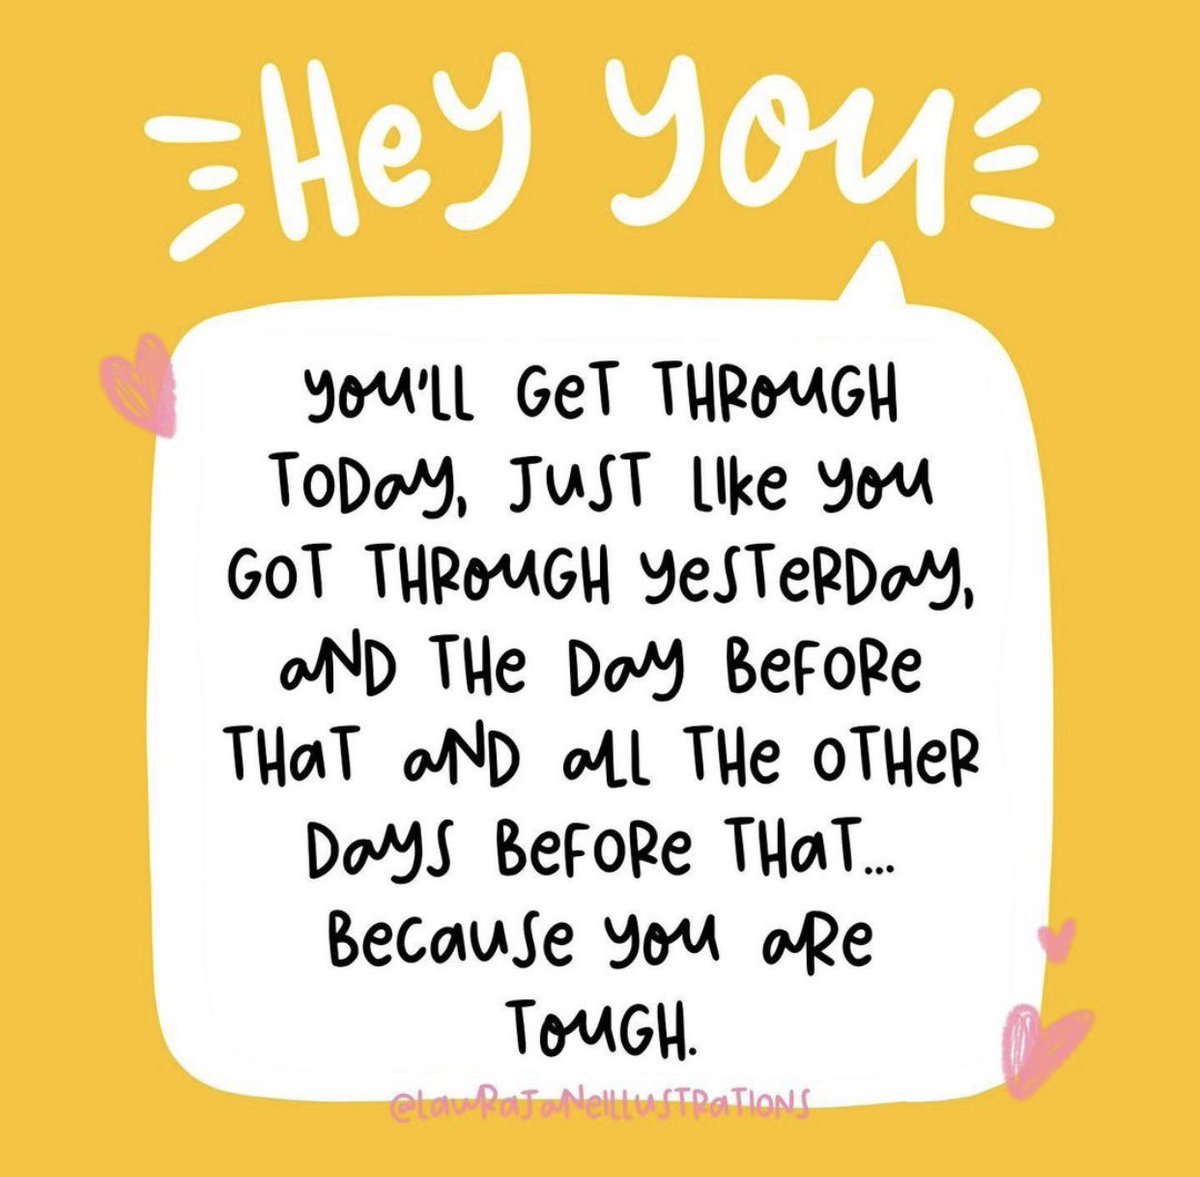 Hey you
you'll get through
today, just like you
got through yesterday,
and the day before
that and all the other
days before that...
because you are
tough.
@laurajaneillustrations